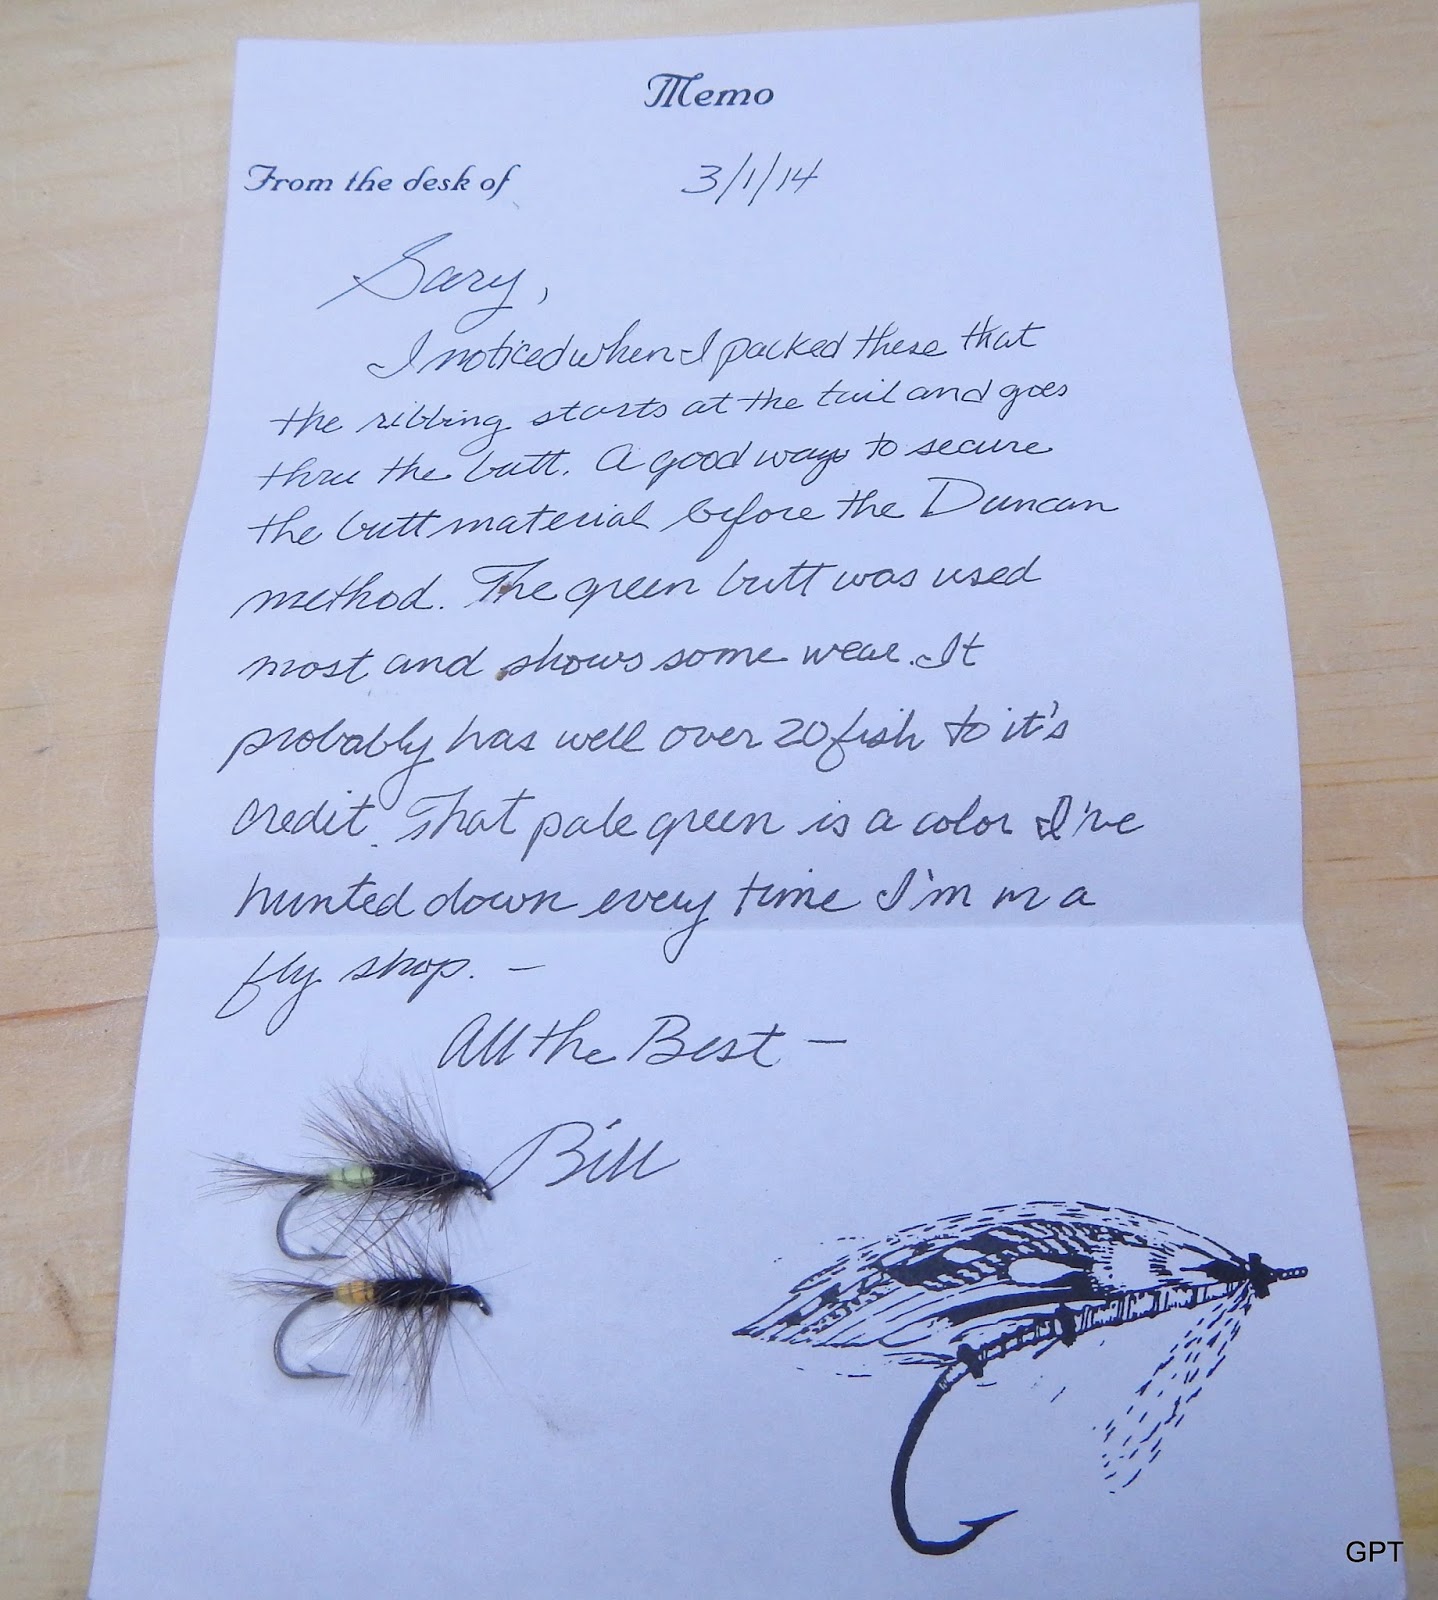 Memo
From the desk of 3/1/14
Gary,
I noticed when I packed these that
the ribbing starts at the tail and goes
thru the butt. A good way to secure
the butt material before the Duncan
method. The green butt was used
most and shows some wear. It
probably has well over 20 fish to it's
credit. That pale green is a color I've
hunted down every time I'm in a
fly shop. -
All the Best -
Bill
GPT